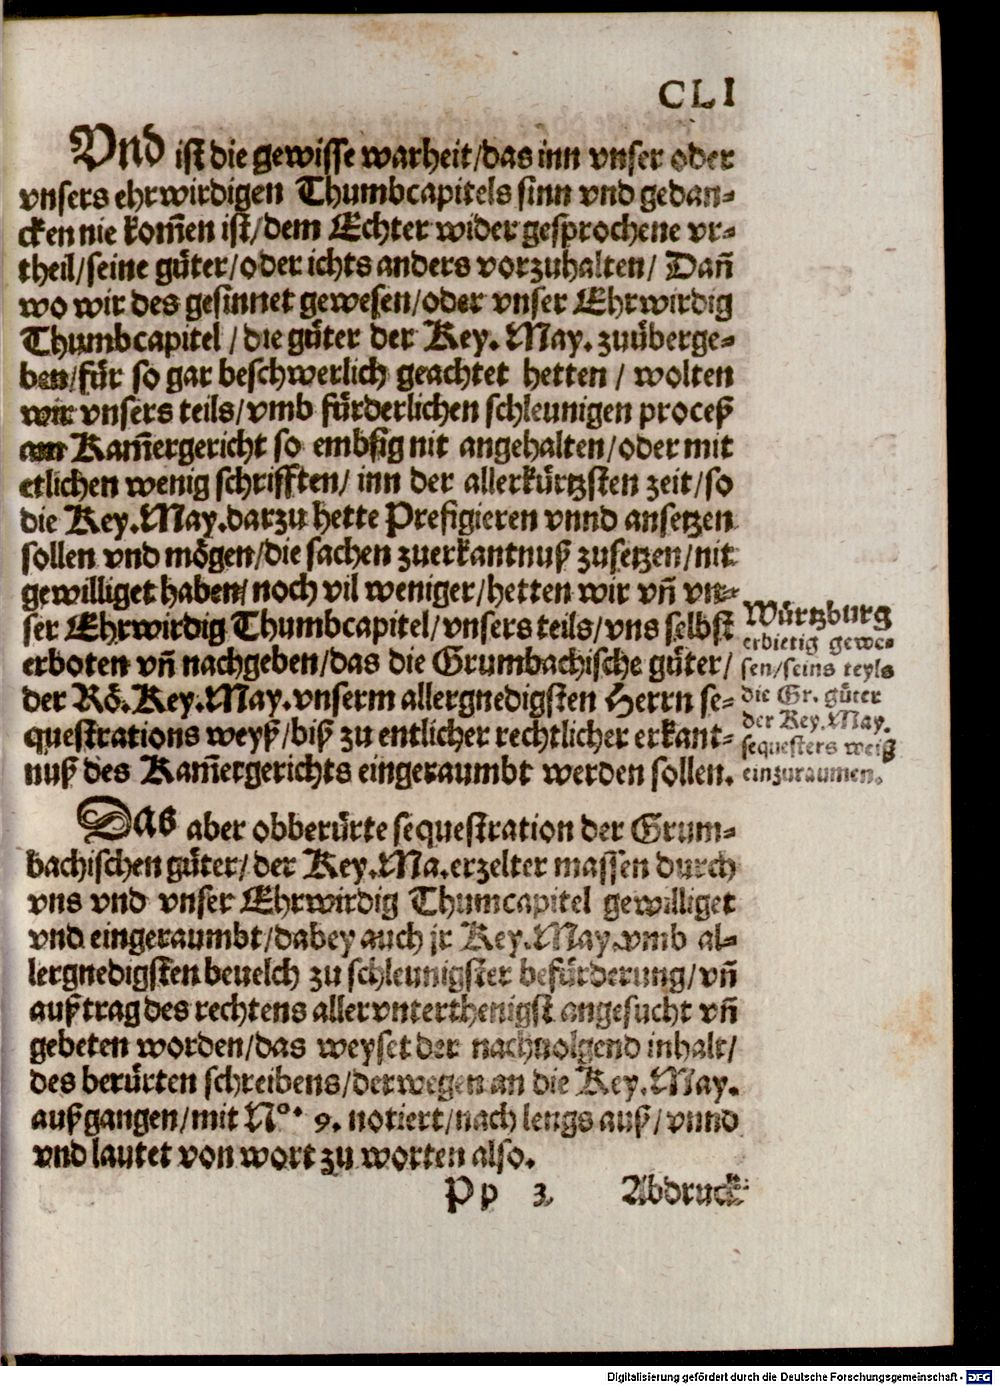 CLI
Vnd ist die gewisse warheit/das inn vnser oder
vnsers ehrwirdigen Thumbcapitels sinn vnd gedan-
cken nie kom̃en ist/dem Echter wider gesprochene vr-
theil/seine guͤter/oder ichts anders vorzuhalten/ Dañ
wo wir des gesinnet gewesen/oder vnser Ehrwirdig
Thumbcapitel/die guͤter der Key. May. zuuͤberge-
ben/fuͤr so gar beschwerlich geachtet hetten/ wolten
wir vnsers teils/vmb fuͤrderlichen schleunigen proceß
am Kam̃ergericht so embsig nit angehalten/oder mit
etlichen wenig schrifften/ inn der allerkuͤrtzsten zeit/so
die Key. May. darzu hette Prefigieren vnnd ansetzen
sollen vnd moͤgen/die sachen zuerkantnuß zusetzen/nit
gewilliget haben/noch vil weniger/hetten wir vñ vn-
ser Ehrwirdig Thumbcapitel/vnsers teils/vns selbst
erboten vñ nachgeben/das die Grumbachische guͤter/
der Roͤ. Key. May. vnserm allergnedigsten Herrn se-
questrations weyß/biß zu entlicher rechtlicher erkant-
nuß des Kam̃ergerichts eingeraumbt werden sollen.
Wuͤrtzburg
erbietig gewe-
sen/seins teyls
die Gr. guͤter
der Key. May.
sequesters weiß
einzuraumen.
Das aber obberuͤrte sequestration der Grum-
bachischen guͤter/der Key. Ma. erzelter massen durch
vns vnd vnser Ehrwirdig Thumcapitel gewilliget
vnd eingeraumbt/dabey auch jr Key. May. vmb al-
lergnedigsten beuelch zu schleunigster befuͤrderung/vñ
außtrag des rechtens allervnterthenigst angesucht vñ
gebeten worden/das weyset der nachuolgend inhalt/
des beruͤrten schreibens/derwegen an die Key. May.
außgangen/mit Nº. 9. notiert/nach lengs auß/vnnd
vnd lautet von wort zu worten also.
Pp 3 Abdruck
Digitalisierung gefördert durch die Deutsche Forschungsgemeinschaft - DFG